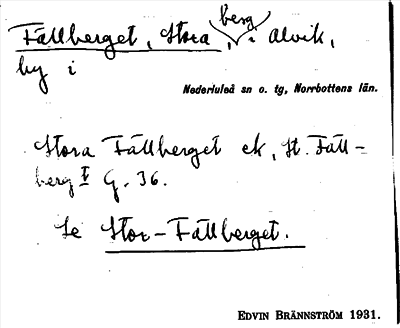 Fällberget, Stora, berg i Alvik,
by i
Nederluleå sn o. tg, Norrbottens län.
Stora Fällberget ek, St. Fäll-
berg I G. 36.
Se Stor-Fällberget.
EDVIN BRÄNNSTRÖM 1931.